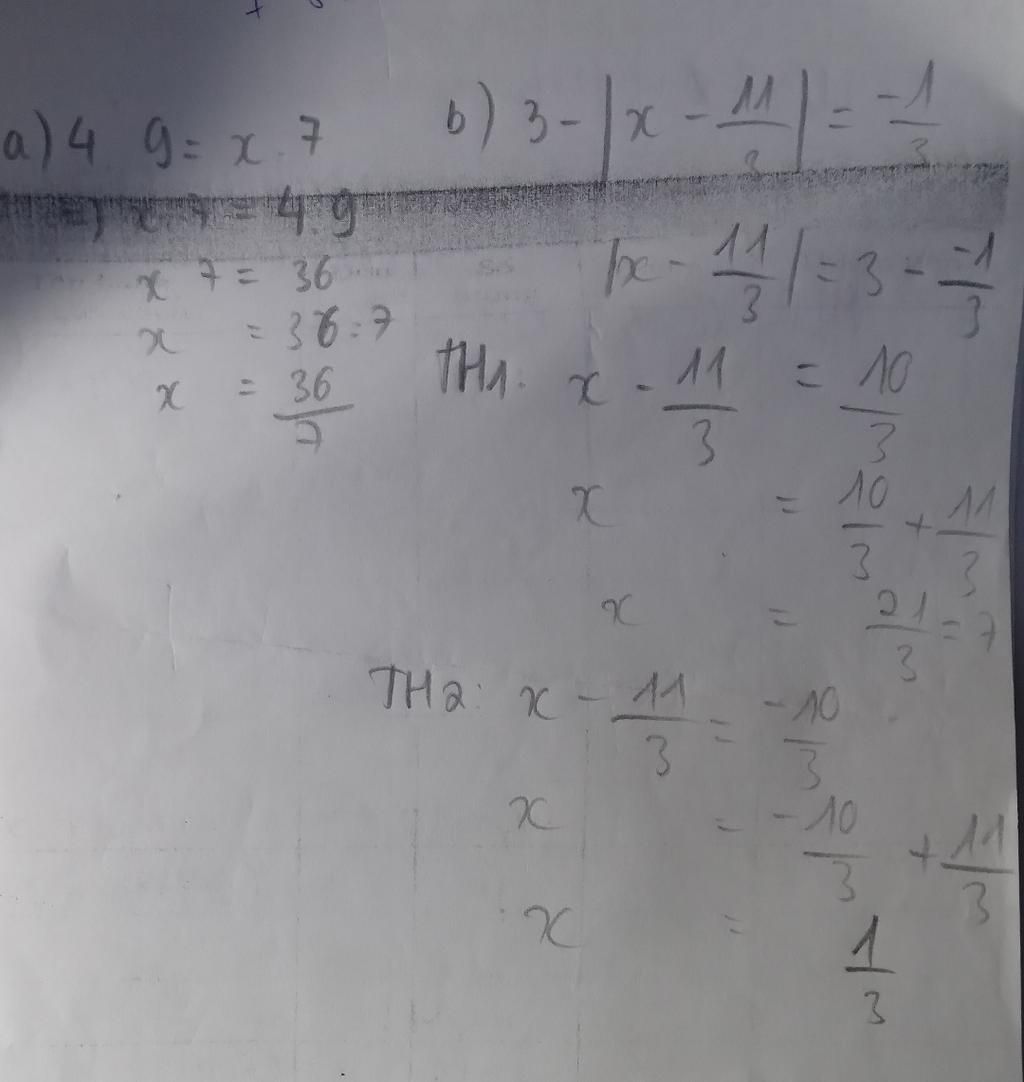 a) 4 9 = x . 7
=> x . 7 = 4 . 9
x 7 = 36
x = 36 : 7
x = 36/7
b) 3 - |x - 11/3| = -1/3
|x - 11/3| = 3 - -1/3
TH1: x - 11/3 = 10/3
x = 10/3 + 11/3
x = 21/3 = 7
TH2: x - 11/3 = -10/3
x = -10/3 + 11/3
x = 1/3